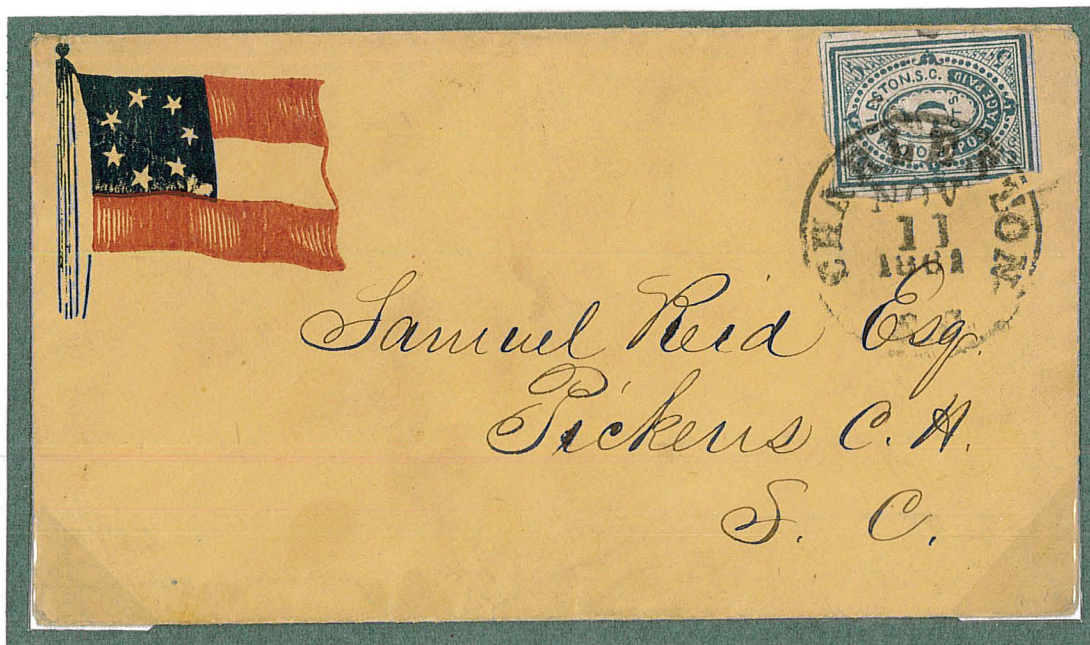 STON.S.C.
POSTAGE PAID
5
CHARLESTON
NOV
11
1861
S.C.
Samuel Reid Esq.
Pickens C. H.
S. C.